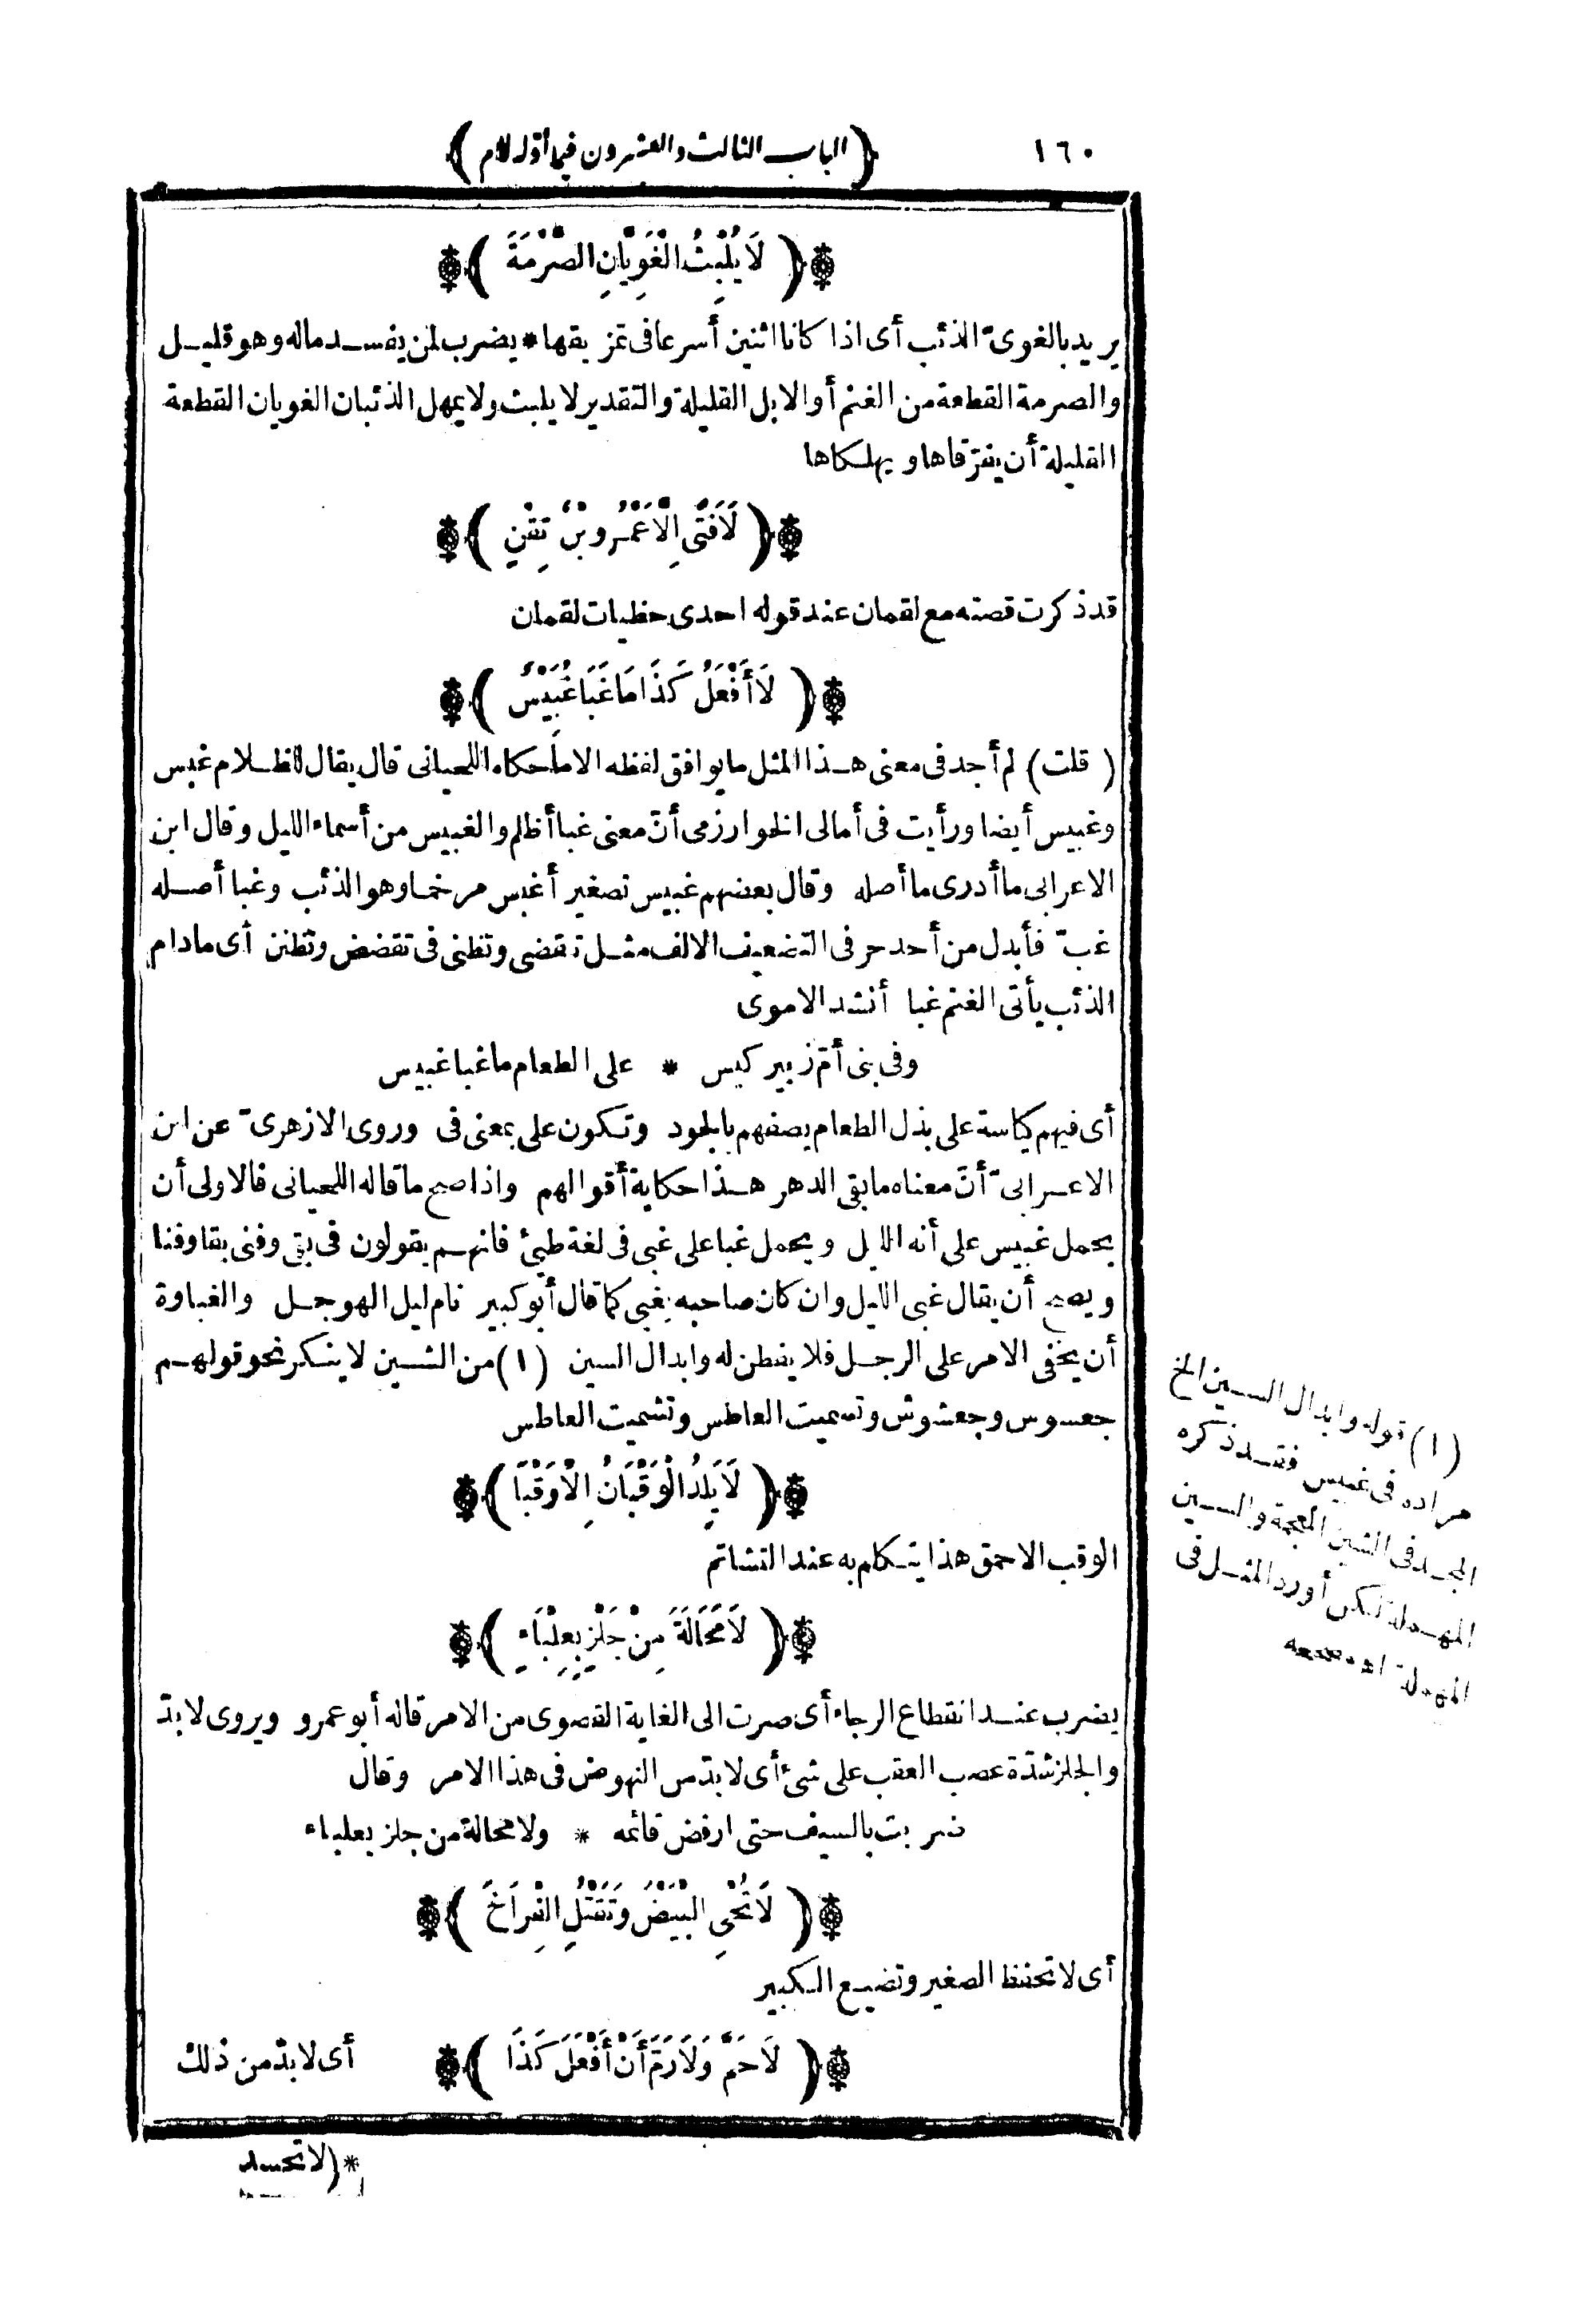 ١٦٠
﴿الباب الثالث والعشرون فيما أوّله لام﴾
﴿ لَا يُلْبِثُ الْغَوِيَّانِ الصِّرْمَةَ ﴾
يريد بالغوىّ الذئب أى اذا كانا اثنين أسرعا فى تمزيقها * يضرب لمن يفسد ماله وهو قليل
والصرمة القطعة من الغنم أو الابل القليلة والتقدير لا يلبث ولا يمهل الذئبان الغويان القطعة
القليلة أن يفرّقاها ويهلكاها
﴿ لَا فَتًى اِلَّا عَمْرُو بْنُ تِقْنٍ ﴾
قد ذكرت قصته مع لقمان عند قوله احدى حظيات لقمان
﴿ لَا أَفْعَلُ كَذَا مَا غَبَا غُبَيْسٌ ﴾
( قلت ) لم أجد فى معنى هذا المثل ما يوافق لفظه الا ما حكاه اللحيانى قال يقال للظلام غبس
وغبيس أيضا ورأيت فى أمالى الخوارزمى أنّ معنى غبا أظلم والغبيس من أسماء الليل وقال ابن
الاعرابى ما أدرى ما أصله وقال بعضهم غبيس تصغير أغبس مرخما وهو الذئب وغبا أصله
غبّ فأبدل من أحد حرفى التضعيف الالف مثل تقضى وتظنى فى تقضض وتظنن أى مادام
الذئب يأتى الغنم غبا أنشد الاموى
وفى بنى أمّ زبير كيس * على الطعام ما غبا غبيس
أى فيهم كياسة على بذل الطعام يصفهم بالجود وتكون على بمعنى فى وروى الازهرىّ عن ابن
الاعرابىّ أنّ معناه ما بقى الدهر هذا حكاية أقوالهم واذا صح ما قاله اللحيانى فالاولى أن
يحمل غبيس على أنه الليل ويحمل غبا على غبى فى لغة طيئ فانهم يقولون فى بقى وفنى بقا وفنا
ويصح أن يقال غبى الليل وان كان صاحبه يغبى كما قال أبو كبير نام ليل الهوجل والغباوة
أن يخفى الامر على الرجل فلا يفطن له وابدال السين (١) من الشين لا ينكر نحو قولهم
جعسوس وجعشوش وتسميت العاطس وتشميت العاطس
﴿ لَا يَلِدُ الْوَقْبَانُ اِلَّا وَقْبًا ﴾
الوقب الاحمق هذا يتكلم به عند التشاتم
﴿ لَا مَحَالَةَ مِنْ جَلْزٍ بِعِلْبَاءٍ ﴾
يضرب عند انقطاع الرجاء أى صرت الى الغاية القصوى من الامر قاله أبو عمرو ويروى لا بدّ
والجلز شدّة عصب العقب على شئ أى لا بدّ من النهوض فى هذا الامر وقال
ضربت بالسيف حتى ارفض قائمه * ولا محالة من جلز بعلباء
﴿ لَا تُحْيِ الْبَيْضَ وَتَقْتُلِ الْفِرَاخَ ﴾
أى لا تحفظ الصغير وتضيع الكبير
﴿ لَا حَمَّ وَلَا رَمَّ أَنْ أَفْعَلَ كَذَا ﴾ أى لا بدّ من ذلك
*(لا تحسد
(١) قوله وابدال السين الخ
مراده فى غبيس فقد ذكره
المجد فى الشين المعجمة والسين
المهملة لكن أورد المثل فى
المهملة اه مصححه